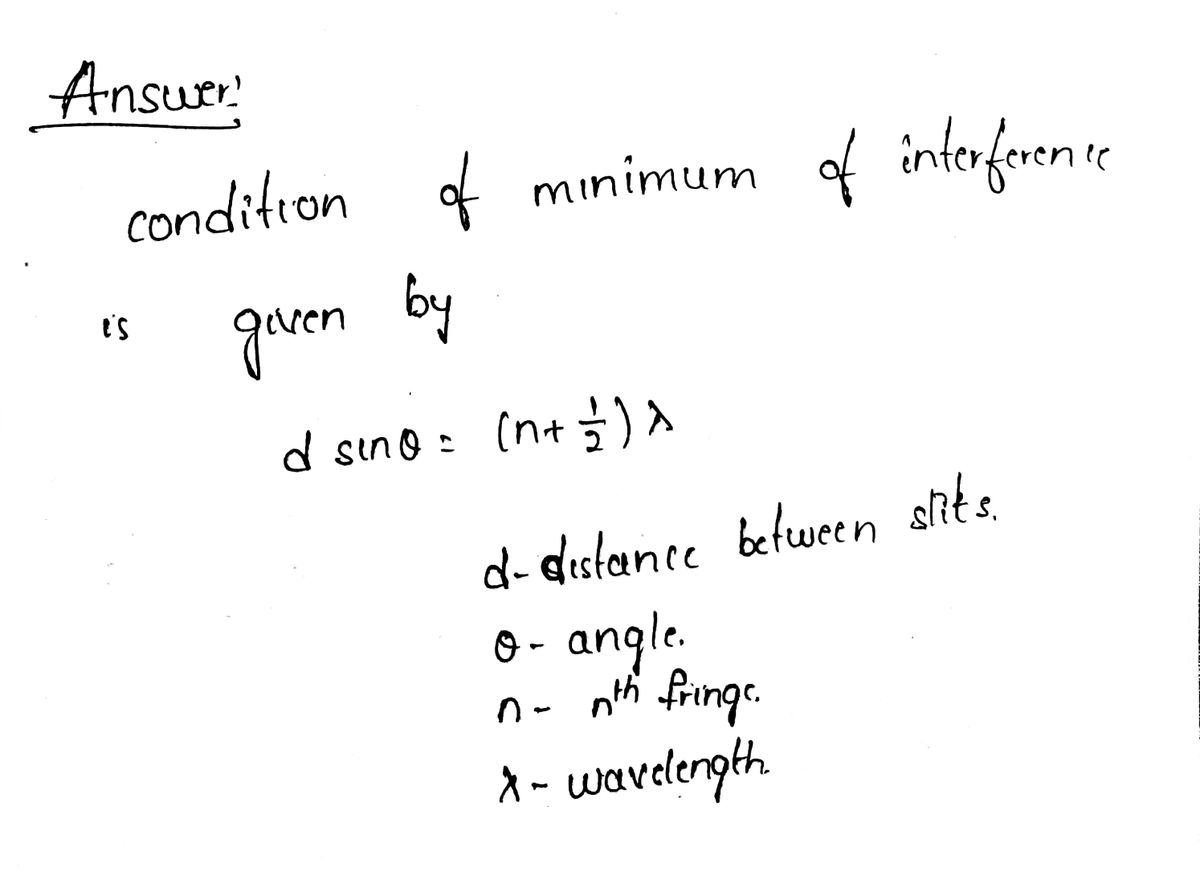 Answer:
condition of minimum of interference
is given by
d sinθ = (n+ 1/2) λ
d- distance between slits.
θ- angle.
n- nth fringe.
λ- wavelength.